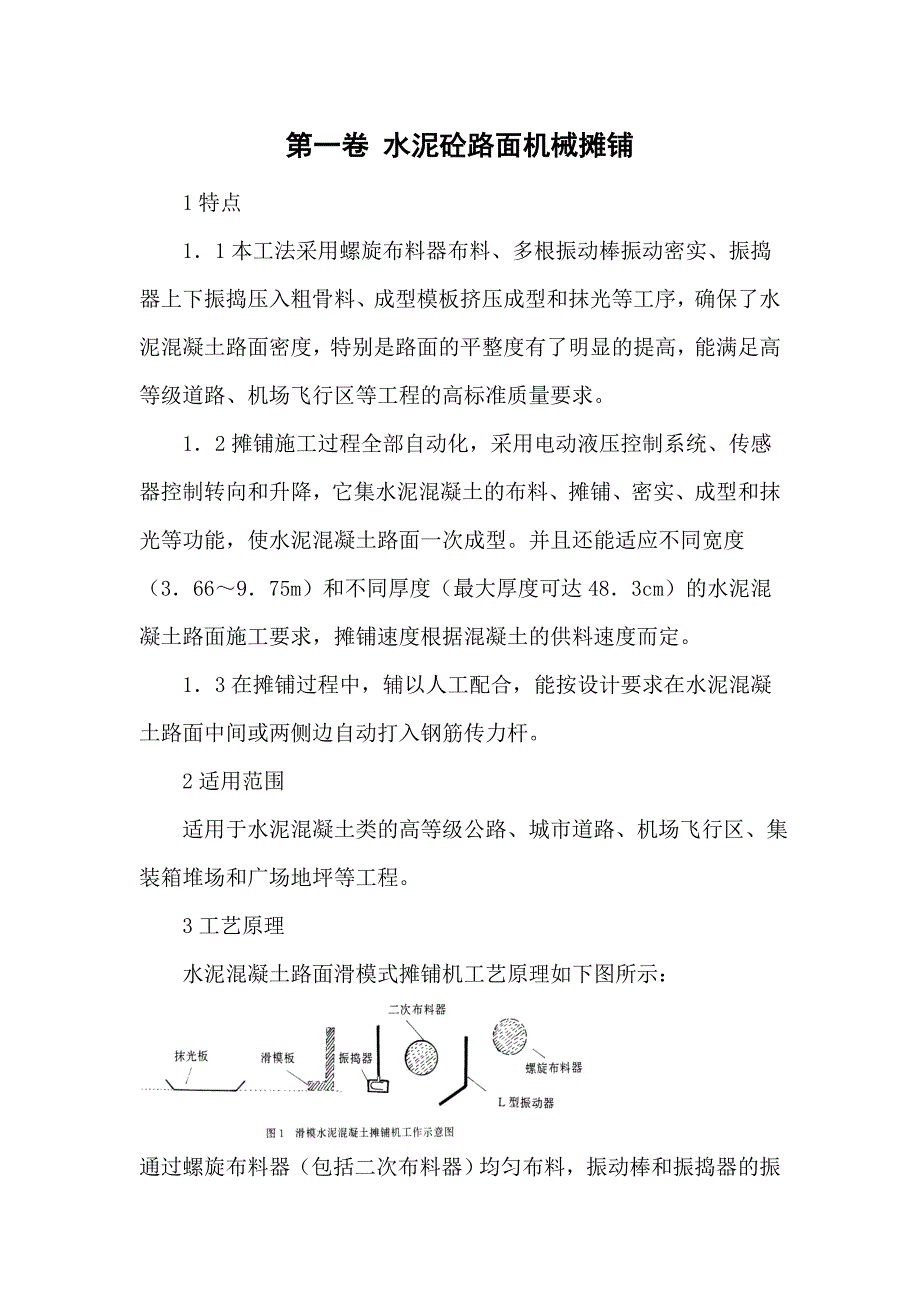 第一卷 水泥砼路面机械摊铺
1特点
1．1本工法采用螺旋布料器布料、多根振动棒振动密实、振捣
器上下振捣压入粗骨料、成型模板挤压成型和抹光等工序，确保了水
泥混凝土路面密度，特别是路面的平整度有了明显的提高，能满足高
等级道路、机场飞行区等工程的高标准质量要求。
1．2摊铺施工过程全部自动化，采用电动液压控制系统、传感
器控制转向和升降，它集水泥混凝土的布料、摊铺、密实、成型和抹
光等功能，使水泥混凝土路面一次成型。并且还能适应不同宽度
（3．66～9．75m）和不同厚度（最大厚度可达48．3cm）的水泥混
凝土路面施工要求，摊铺速度根据混凝土的供料速度而定。
1．3在摊铺过程中，辅以人工配合，能按设计要求在水泥混凝
土路面中间或两侧边自动打入钢筋传力杆。
2适用范围
适用于水泥混凝土类的高等级公路、城市道路、机场飞行区、集
装箱堆场和广场地坪等工程。
3工艺原理
水泥混凝土路面滑模式摊铺机工艺原理如下图所示：
二次布料器
抹光板
滑模板
振捣器
螺旋布料器
L型振动器
图1 滑模水泥混凝土摊铺机工作示意图
通过螺旋布料器（包括二次布料器）均匀布料，振动棒和振捣器的振